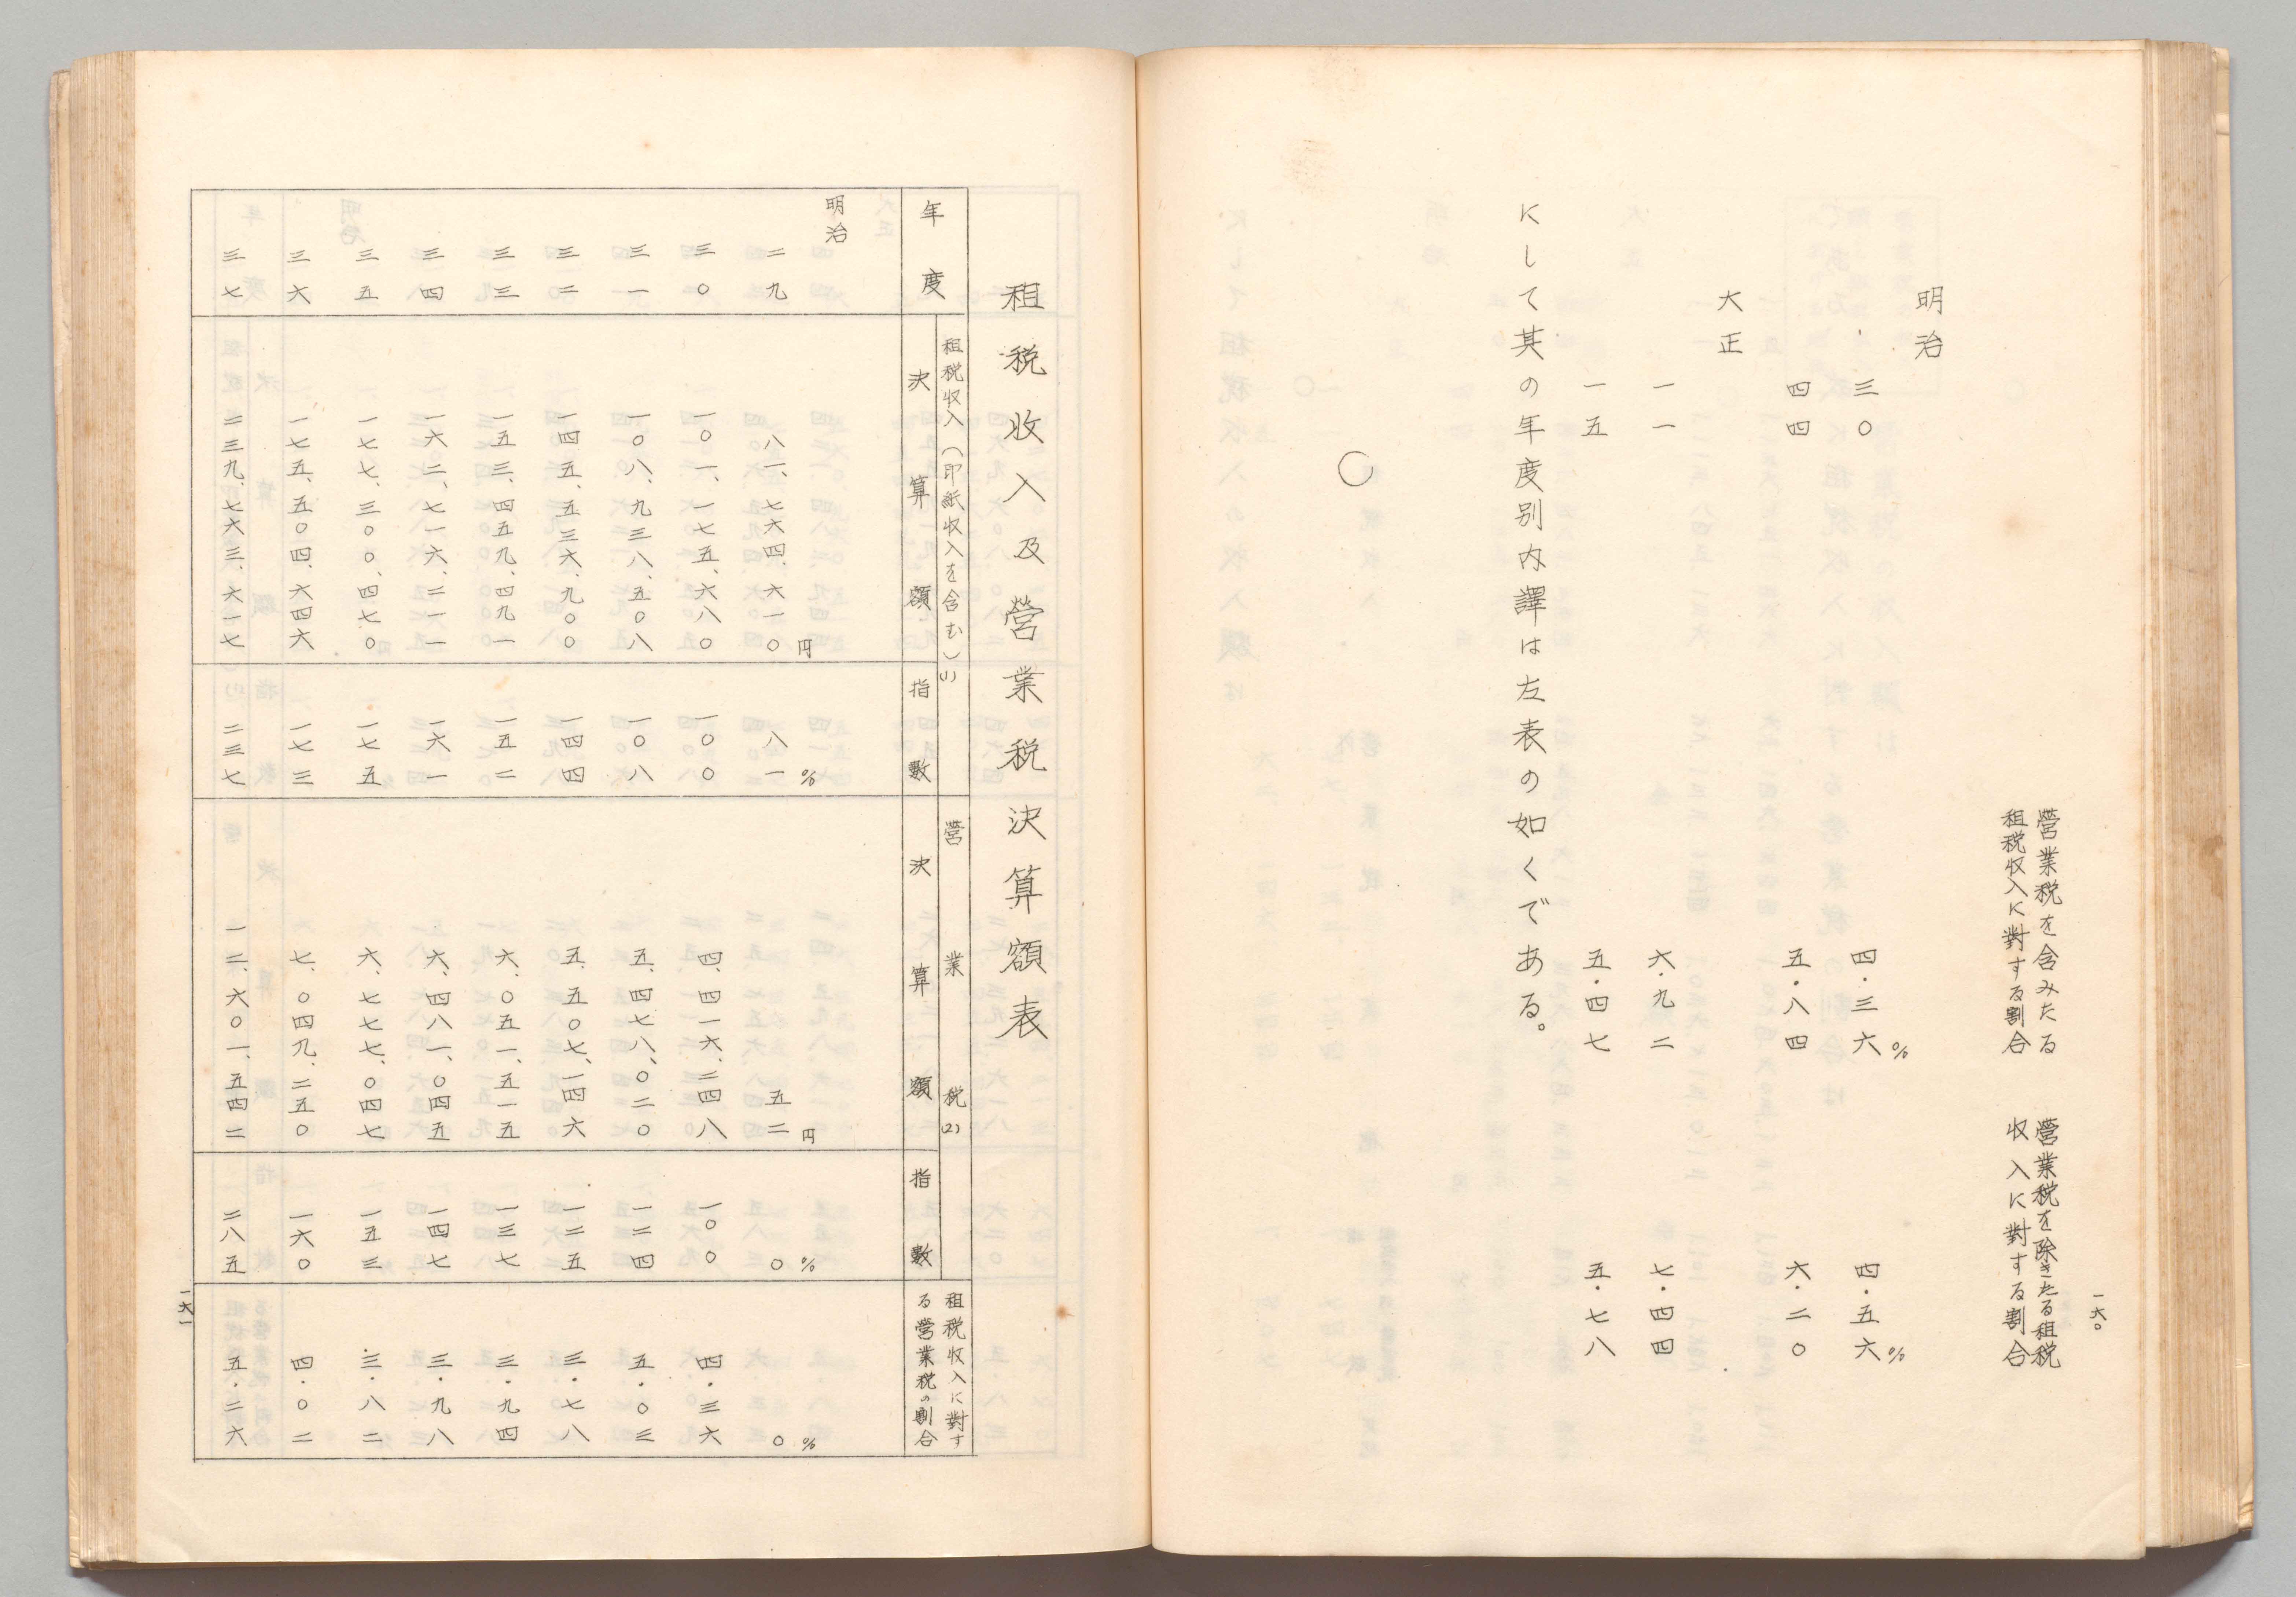 一六〇
營業税を含みたる
租税收入に對する割合
營業税を除きたる租税
收入に對する割合
明治
三〇 四・三六% 四・五六%
四四 五・八四 六・二〇
大正
一一 六・九二 七・四四
一五 五・四七 五・七八
にして其の年度別内譯は左表の如くである。
○
租税收入及營業税決算額表
租税收入(印紙收入を含む)(1)
營業税(2)
租税收入に對す
る營業税の割合
年度 決算額 指數 決算額 指數
明治
円 % 円 % %
二九 八一、七六四、六一〇 八一 五二 〇 〇
三〇 一〇一、一七五、六八〇 一〇〇 四、四一六、二四八 一〇〇 四・三六
三一 一〇八、九三八、五〇八 一〇八 五、四七八、〇二〇 一二四 五・〇三
三二 一四五、五三六、九〇〇 一四四 五、五〇七、一四六 一二五 三・七八
三三 一五三、四五九、四九一 一五二 六、〇五一、五一五 一三七 三・九四
三四 一六二、七一六、二一一 一六一 六、四八一、〇四五 一四七 三・九八
三五 一七七、三〇〇、四七〇 一七五 六、七七七、〇四七 一五三 三・八二
三六 一七五、五〇四、六四六 一七三 七、〇四九、二五〇 一六〇 四・〇二
三七 二三九、七六三、六一七 二三七 一二、六〇一、五四二 二八五 五・二六
一六一